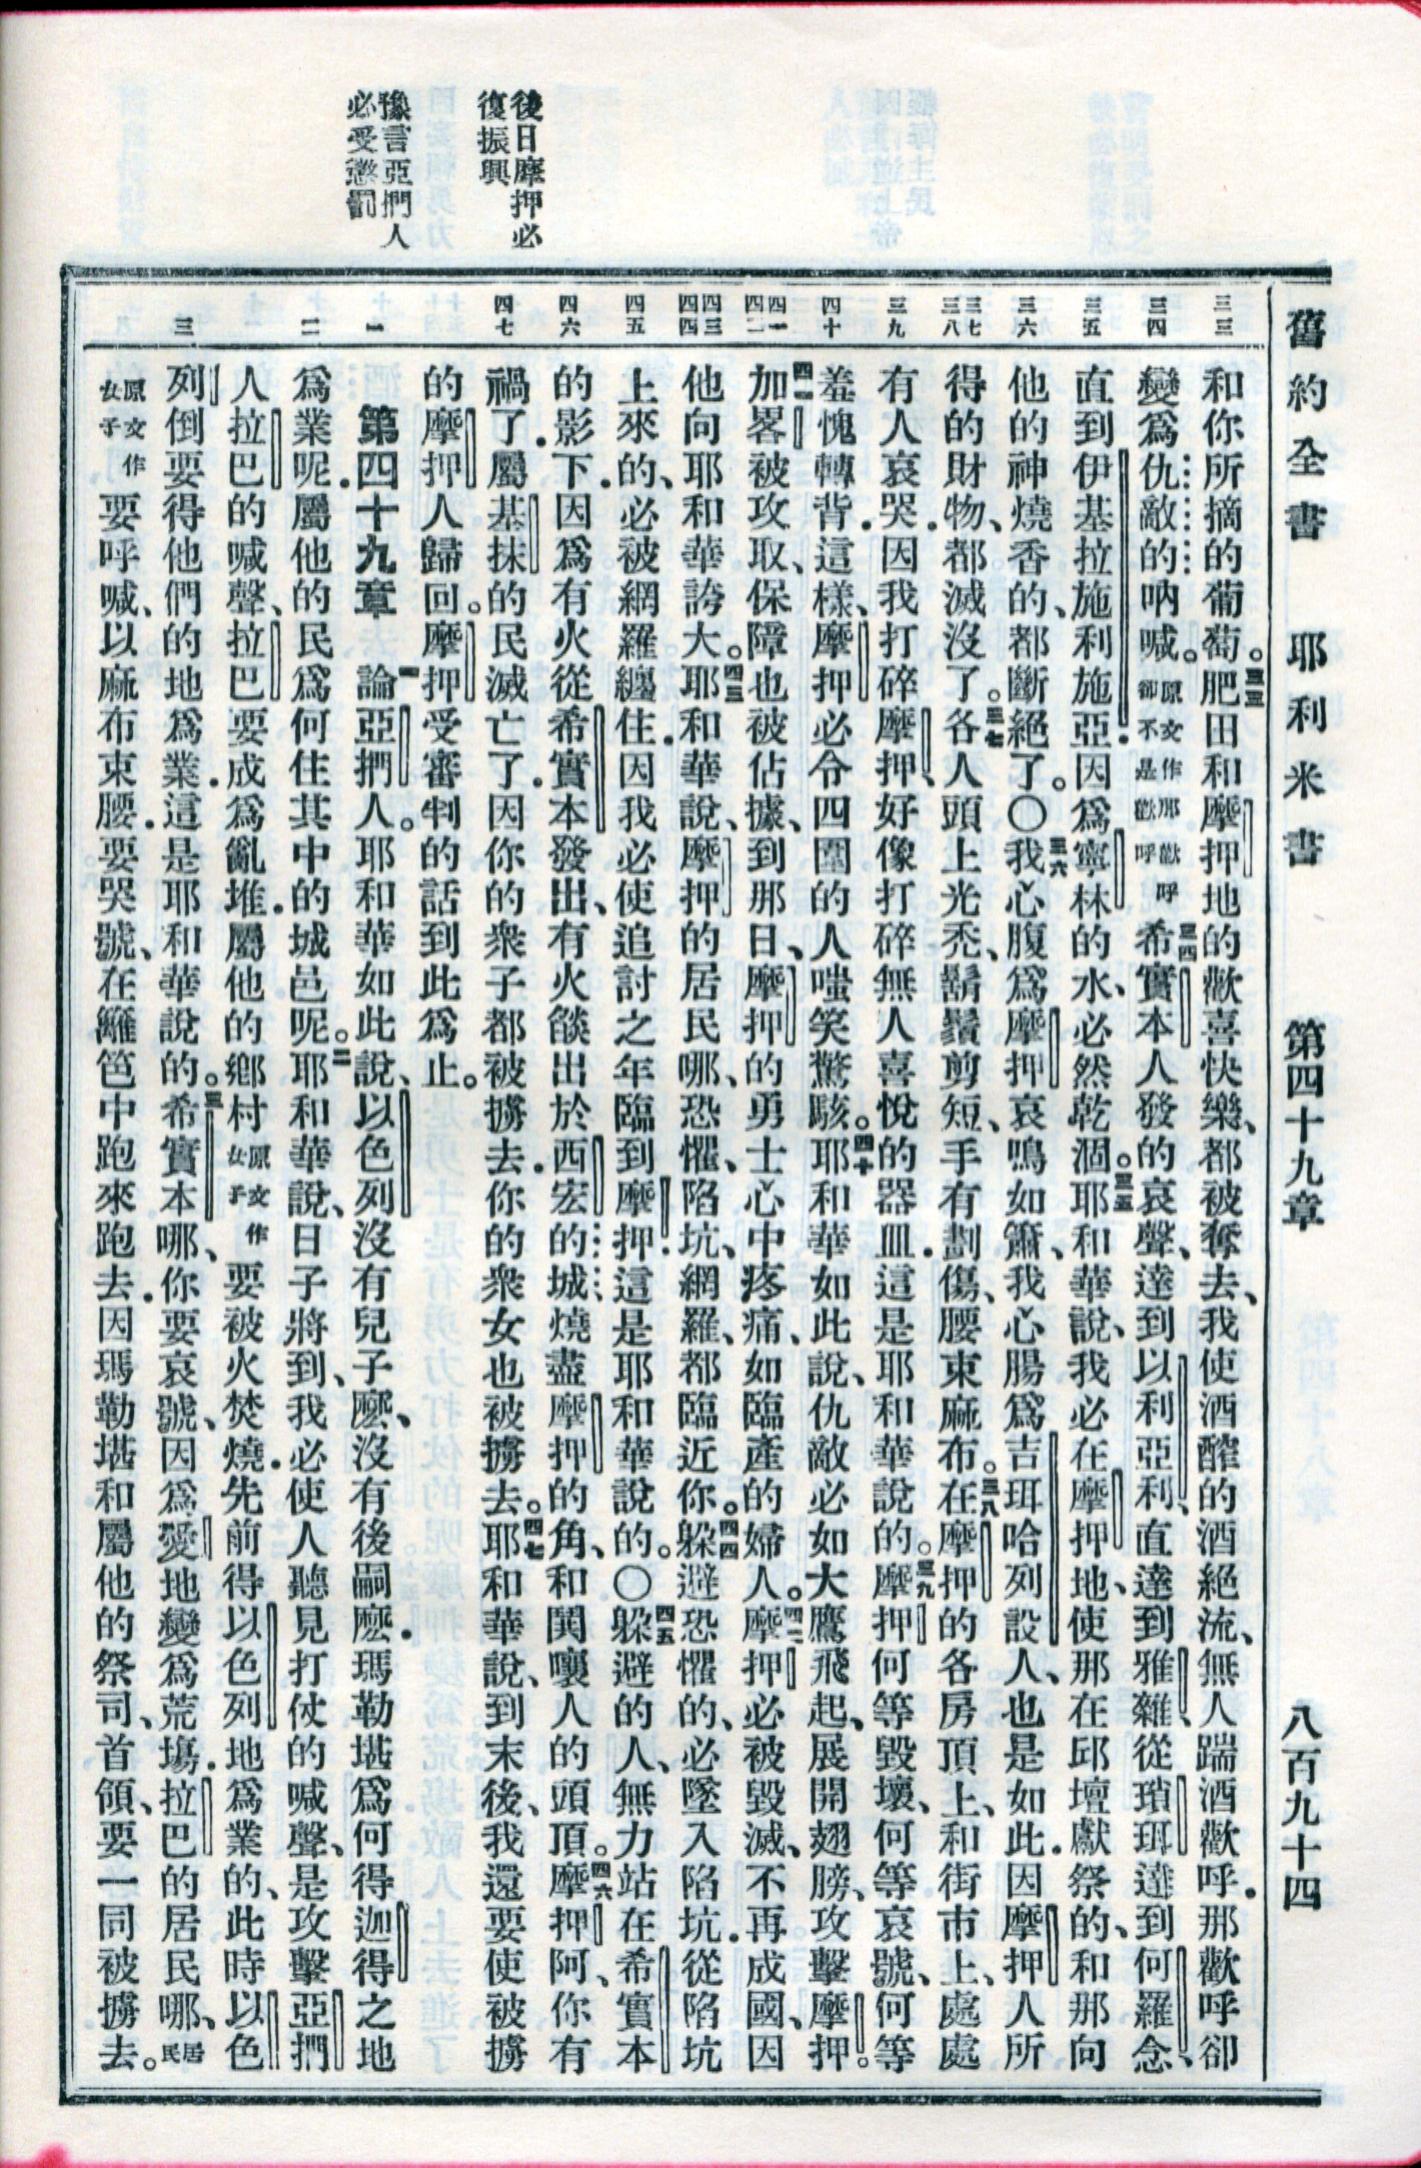 舊約全書 耶利米書 第四十九章 八百九十四
後日摩押必
復振興
豫言亞捫人
必受懲罰
三三
三四
三五
三六
三七
三八
三九
四十
四一
四二
四三
四四
四五
四六
四七
一
二
三
和你所摘的葡萄。三三肥田和摩押地的歡喜快樂、都被奪去、我使酒醡的酒絕流、無人踹酒歡呼．那歡呼卻
變爲仇敵的吶喊。原文作那歡呼卻不是歡呼三四希實本人發的哀聲、達到以利亞利、直達到雅雜、從瑣珥達到何羅念、
直到伊基拉施利施亞．因爲寧林的水、必然乾涸。三五耶和華說、我必在摩押地、使那在邱壇獻祭的、和那向
他的神燒香的、都斷絕了。○三六我心腹爲摩押哀鳴如簫、我心腸爲吉珥哈列設人、也是如此．因摩押人所
得的財物、都滅沒了。三七各人頭上光禿、鬍鬚剪短、手有劃傷、腰束麻布。三八在摩押的各房頂上、和街市上、處處
有人哀哭．因我打碎摩押、好像打碎無人喜悅的器皿．這是耶和華說的。三九摩押何等毀壞、何等哀號、何等
羞愧轉背．這樣、摩押必令四圍的人嗤笑驚駭。四十耶和華如此說、仇敵必如大鷹飛起、展開翅膀、攻擊摩押。
四一加畧被攻取、保障也被佔據、到那日、摩押的勇士心中疼痛、如臨產的婦人。四二摩押必被毀滅、不再成國、因
他向耶和華誇大。四三耶和華說、摩押的居民哪、恐懼、陷坑、網羅、都臨近你。四四躲避恐懼的、必墜入陷坑．從陷坑
上來的、必被網羅纏住．因我必使追討之年臨到摩押．這是耶和華說的。○四五躲避的人、無力站在希實本
的影下．因爲有火從希實本發出、有火燄出於西宏的城、燒盡摩押的角、和鬨嚷人的頭頂。四六摩押阿、你有
禍了．屬基抹的民滅亡了．因你的衆子都被擄去．你的衆女也被擄去。四七耶和華說、到末後、我還要使被擄
的摩押人歸回。摩押受審判的話到此爲止。
第四十九章 一論亞捫人。耶和華如此說、以色列沒有兒子麼、沒有後嗣麼．瑪勒堪爲何得迦得之地
爲業呢．屬他的民爲何住其中的城邑呢。二耶和華說、日子將到、我必使人聽見打仗的喊聲、是攻擊亞捫
人拉巴的喊聲、拉巴要成爲亂堆．屬他的鄉村原文作女子要被火焚燒．先前得以色列地爲業的、此時以色
列倒要得他們的地爲業．這是耶和華說的。三希實本哪、你要哀號、因爲愛地變爲荒塲．拉巴的居民哪、居民
原文作女子要呼喊、以麻布束腰．要哭號、在籬笆中跑來跑去．因瑪勒堪和屬他的祭司、首領、要一同被擄去。